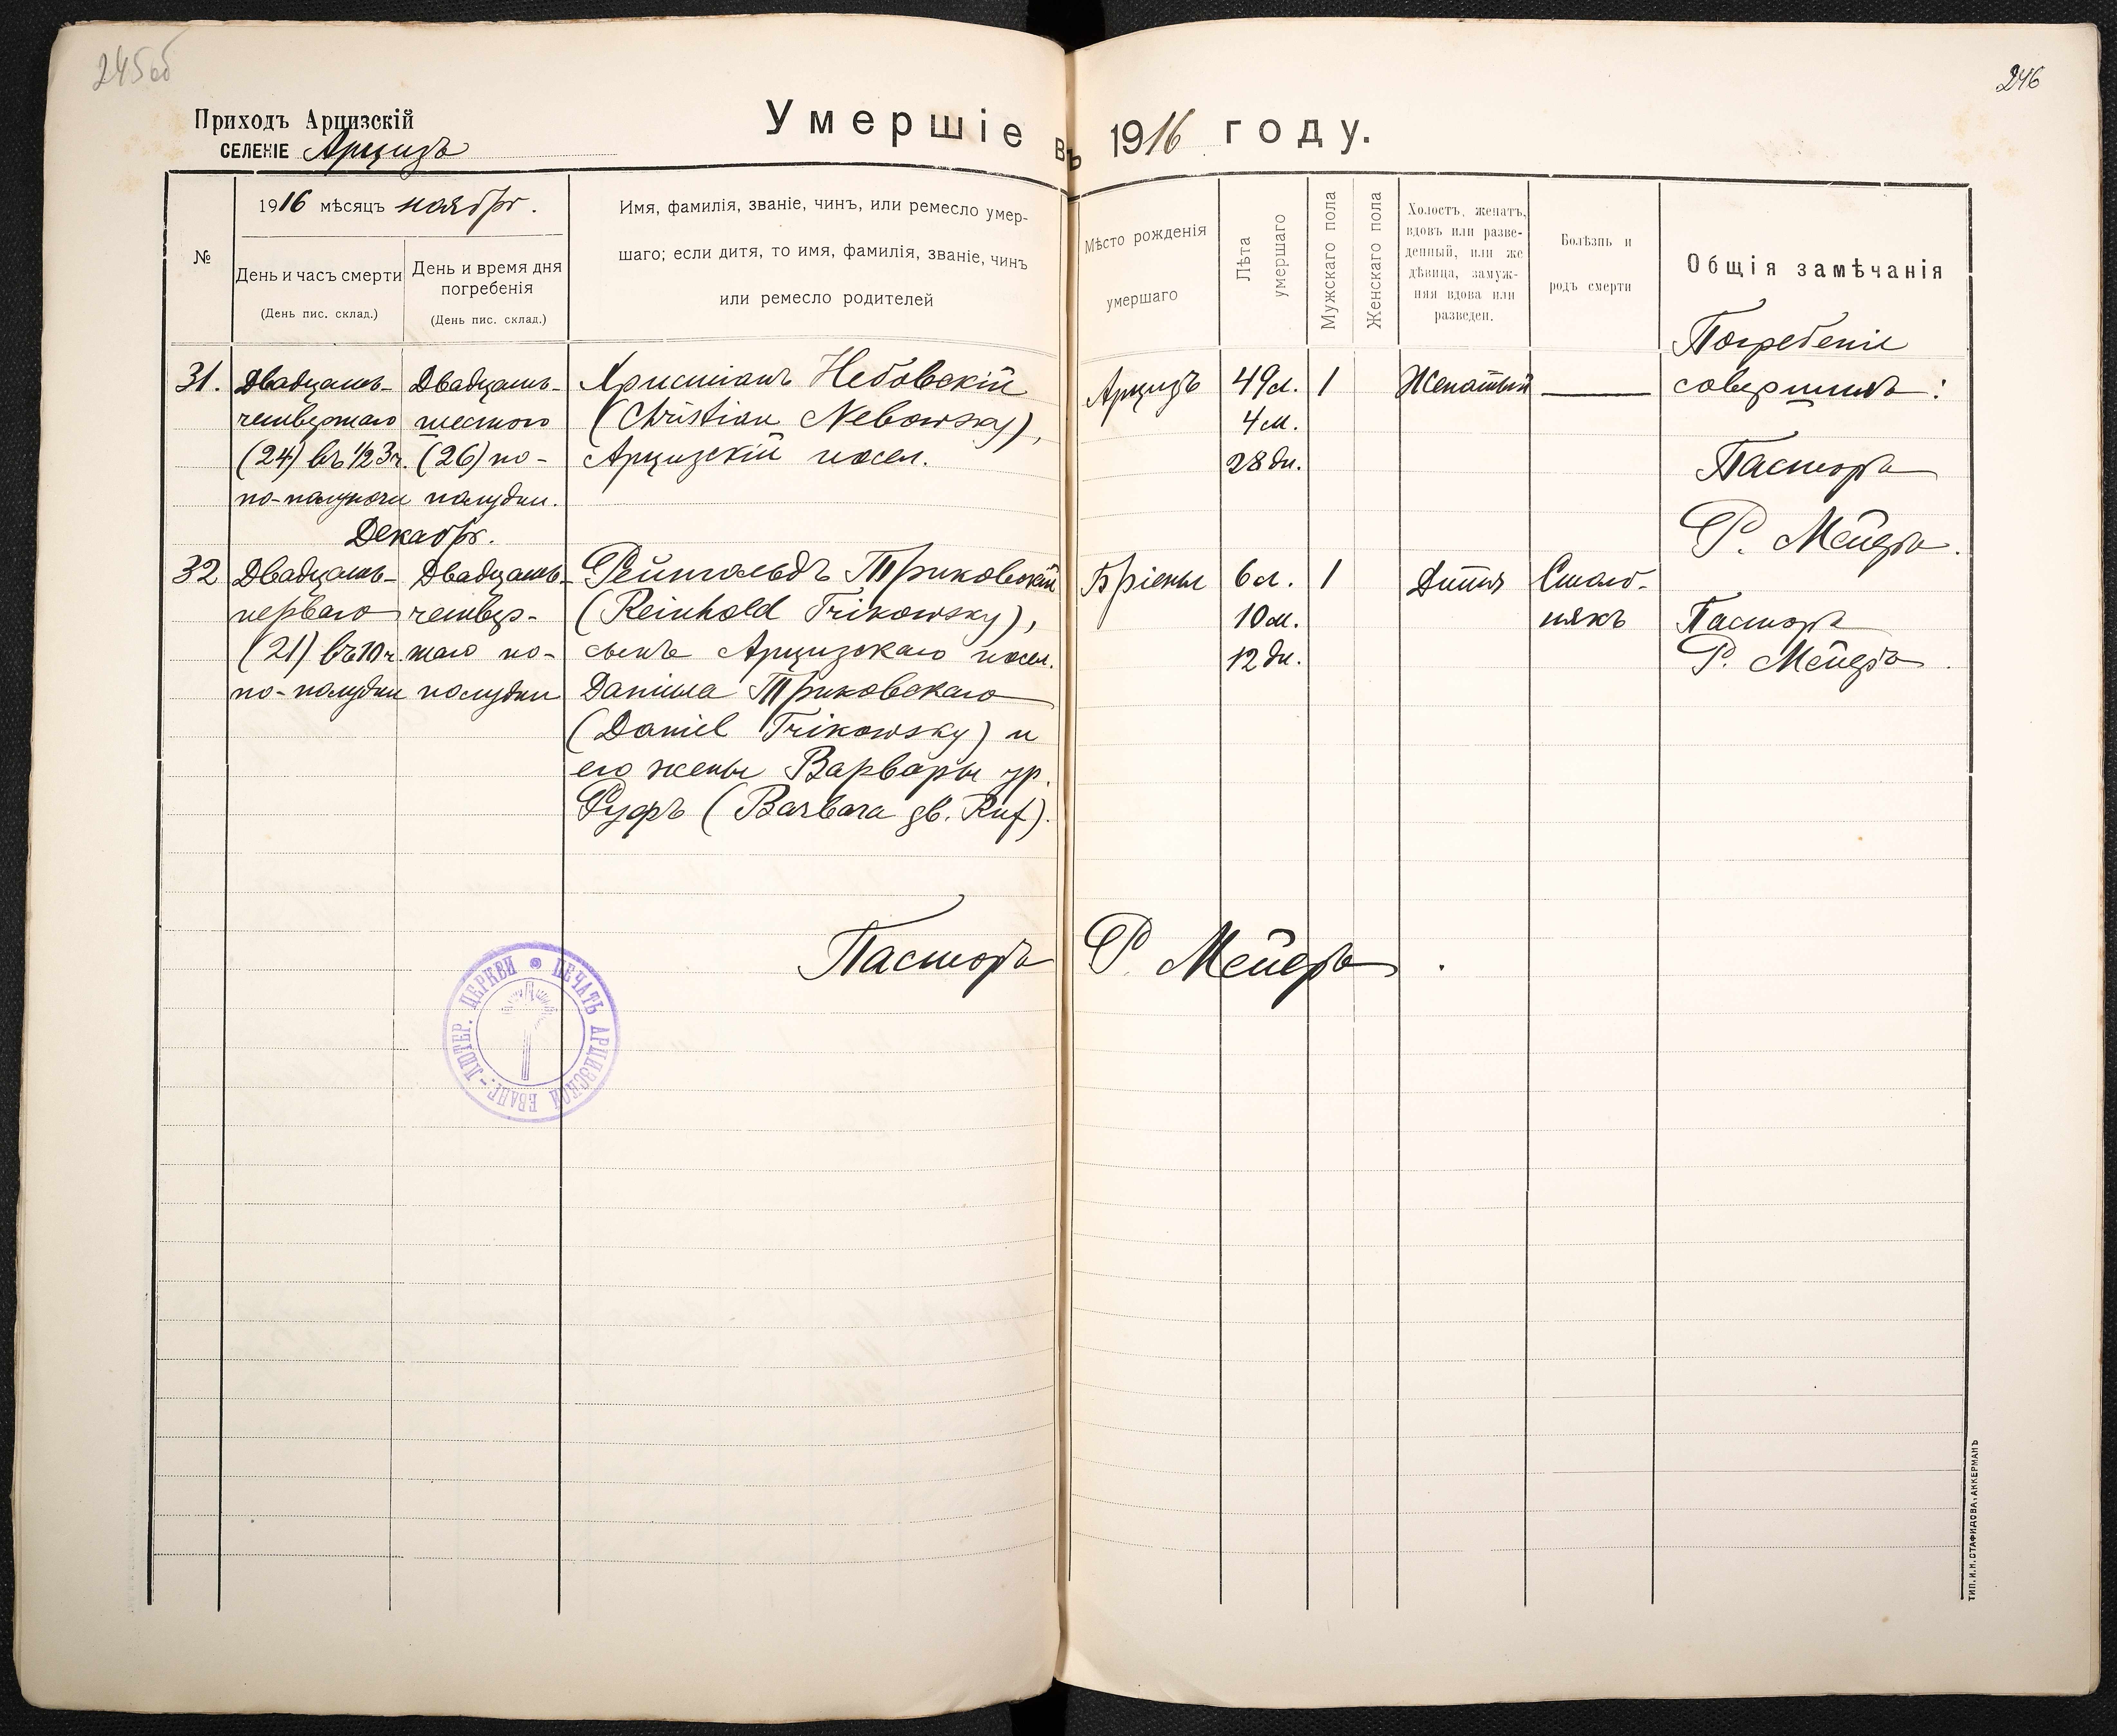 245об
246
Приходъ Арцизскій
СЕЛЕНІЕ Арцизъ
Умершіе въ 1916 году.
№
1916 мѣсяцъ ноябрь.
День и часъ смерти
(День пис. склад.)
День и время дня
погребенія
(День пис. склад.)
Имя, фамилія, званіе, чинъ, или ремесло умер-
шаго; если дитя, то имя, фамилія, званіе, чинъ
или ремесло родителей
Мѣсто рожденія
умершаго
Лѣта
умершаго
Мужскаго пола
Женскаго пола
Холостъ, женатъ,
вдовъ или разве-
денный, или же
дѣвица, замуж-
няя вдова или
разведен.
Болѣзнь и
родъ смерти
Общія замѣчанія
31.
Двадцать-
четвертаго
(24) въ ½3ч.
по-полуночи
Двадцать-
шестого
(26) по-
полудни.
Христіанъ Небовскій
(Christian Nebowsky),
Арцизскій посел.
Арцизъ
49л.
4м.
28дн.
1
Женатый
Погребеніе
совершилъ:
Пасторъ
Р. Мейеръ.
Декабрь.
32
Двадцать-
перваго
(21) въ 10ч.
по-полудни
Двадцать-
четвер-
таго по-
полудни
Рейнгольдъ Триковскій
(Reinhold Trikowsky),
сынъ Арцизскаго посел.
Даніила Триковскаго
(Daniel Trikowsky) и
его жены Варвары ур.
Руфъ (Barbara gb. Ruf).
Бріены
6л.
10м.
12дн.
1
Дитя
Столб-
някъ
Пасторъ
Р. Мейеръ.
Пасторъ Р. Мейеръ.
ПЕЧАТЬ АРЦИЗСКОЙ ЕВАНГ.-ЛЮТЕР. ЦЕРКВИ
ТИП. И. Н. СТАФИДОВА, АККЕРМАНЪ